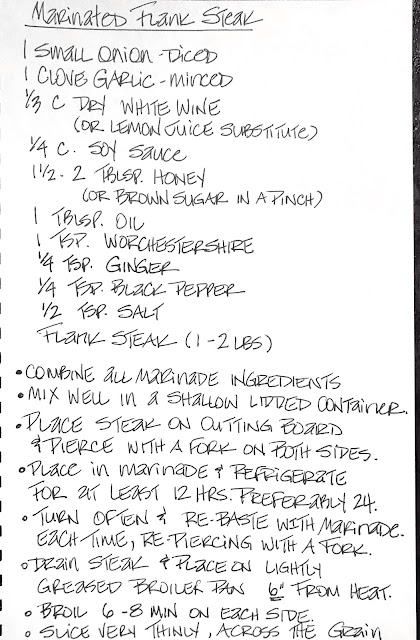 Marinated Flank Steak
1 Small Onion - Diced
1 Clove Garlic - minced
1/3 C Dry White Wine
(or Lemon Juice Substitute)
1/4 C. Soy Sauce
1 1/2 - 2 Tblsp. Honey
(or Brown Sugar in a pinch)
1 Tblsp. Oil
1 Tsp. Worchestershire
1/4 Tsp. Ginger
1/4 Tsp. Black Pepper
1/2 Tsp. Salt
Flank Steak (1-2 lbs)
• Combine all marinade ingredients
• Mix well in a shallow lidded container.
• Place steak on cutting board
& pierce with a fork on both sides.
• Place in marinade & refrigerate
for at least 12 hrs. Preferably 24.
• Turn often & re-baste with marinade.
Each time, re-piercing with a fork.
• Drain steak & place on lightly
greased broiler pan 6" from heat.
• Broil 6-8 min on each side.
• Slice very thinly, across the grain